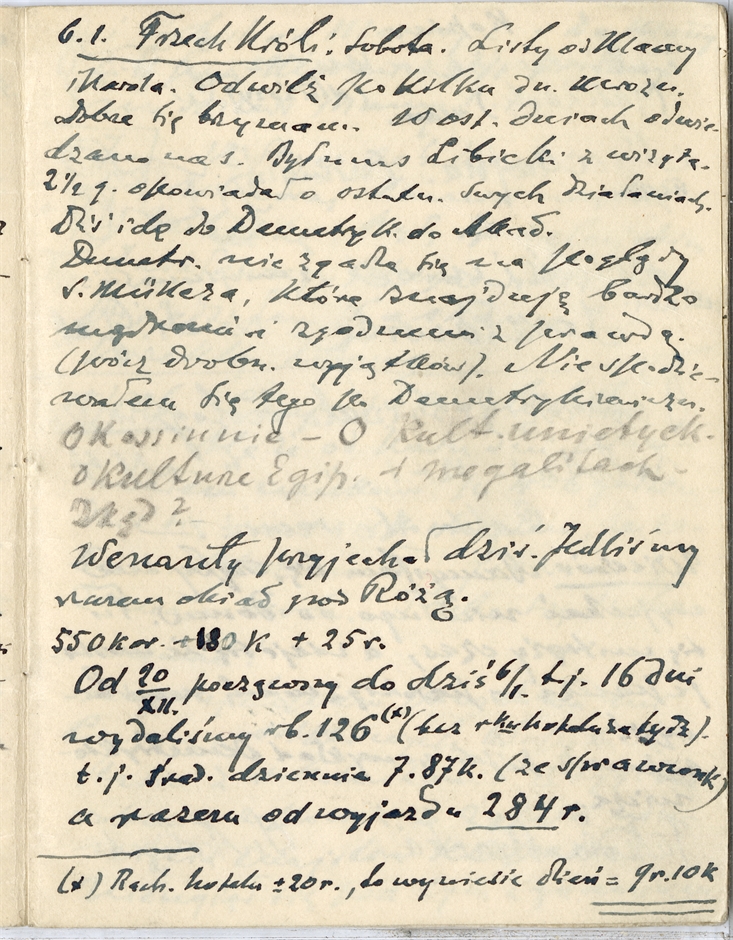 6.1. Trzech Króli. Sobota. Listy od Klary
i Karola. Odwilż po kilku dn. mrozu.
Dobrze się trzymam. W ost. dniach odwie-
dzano nas. Był u nas Libicki z wizytą.
2½ g. opowiadał o ostatn. swych działaniach.
Dziś idę do Demetryk. do Akad.
Demetr. nie zgadza się na poglądy
S. Müllera, które znajduję bardzo
mądremi i zgodnemi z prawdą.
(prócz drobn. wyjątków). Nie spodzie-
wałem się tego po Demetrykiewiczu.
O Kossinnie – O kult. unietyck.
o kulturze Egip. i megalitach –
Skąd?
Wenanty przyjechał dziś. Jedliśmy
razem obiad pod Różą.
550 kor. + 180 K + 25 r.
Od 20/XII. począwszy do dziś 6/I. t.j. 16 dni
wydaliśmy rb. 126 (x) (bez
t.j. śred. dziennie 7.87 k. (ze sprawunk)
a razem od wyjazdu 284 r.
(x) Rach. hotelu ± 20 r., to wyniesie dzień = 9 r. 10 K